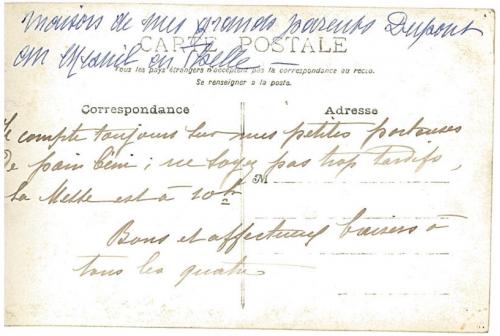 maison de mes grands parents Dupont
au Mesnil en Thelle —
CARTE POSTALE
Tous les pays étrangers n'acceptent pas la correspondance au recto.
Se renseigner à la poste.
Correspondance
Adresse
Je compte toujours sur mes petites porteuses
de pain béni ; ne soyez pas trop tardifs,
la Messe est à 10h
M
Bons et affectueux baisers à
tous les quatre